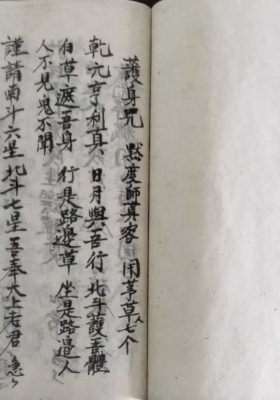 護身咒 黙度師真容 用茅草七个
乾元亨利真 日月與吾行 北斗護吾體
白草遮吾身 行是路邉草 坐是路邉人
人不見鬼不聞
謹請南斗六星北斗七星吾奉太上老君急々